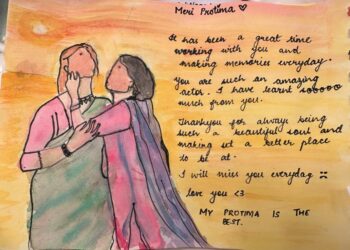 Meri Protima ♡
It has been a great time
working with you and
making memories everyday.
You are such an amazing
actor. I have learnt soooooo
much from you.
Thankyou for always being
such a beautiful soul and
making set a better place
to be at.
I will miss you everyday :(
love you <3
MY PROTIMA IS THE
BEST.